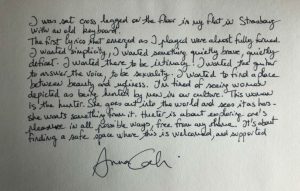 I was sat cross legged on the floor in my flat in Strasbourg
with an old keyboard.
The first lyrics that emerged as I played were almost fully formed.
I wanted simplicity, I wanted something quietly brave, quietly
defiant. I wanted there to be intimacy. I wanted the guitar
to answer the voice, to be sexuality. I wanted to find a place
between beauty and ugliness. I'm tired of seeing women
depicted as being hunted by men in our culture. This woman
is the hunter. She goes out into the world and sees it as hers
she wants something from it. Hunter is about exploring one's
pleasure in all possible ways, free from any shame. It's about
finding a safe space where this is welcomed, and supported
Anna Calvi